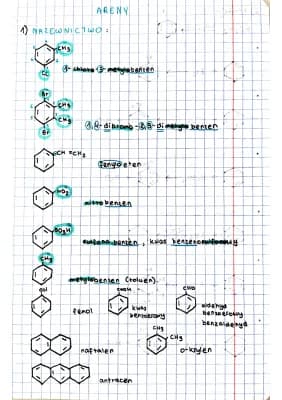 ARENY
1) NAZEWNICTWO:
CH3
Cl
1-chloro-3-metylobenzen
Br
CH3
CH3
Br
1,4-dibromo-2,3-dimetylobenzen
CH=CH2
fenyloeten
NO2
nitrobenzen
SO3H
kwas benzenosulfonowy
CH3
metylobenzen (toluen)
OH
fenol
COOH
kwas
benzoesowy
CHO
aldehyd
benzoesowy
benzaldehyd
naftalen
CH3
CH3
o-ksylen
antracen